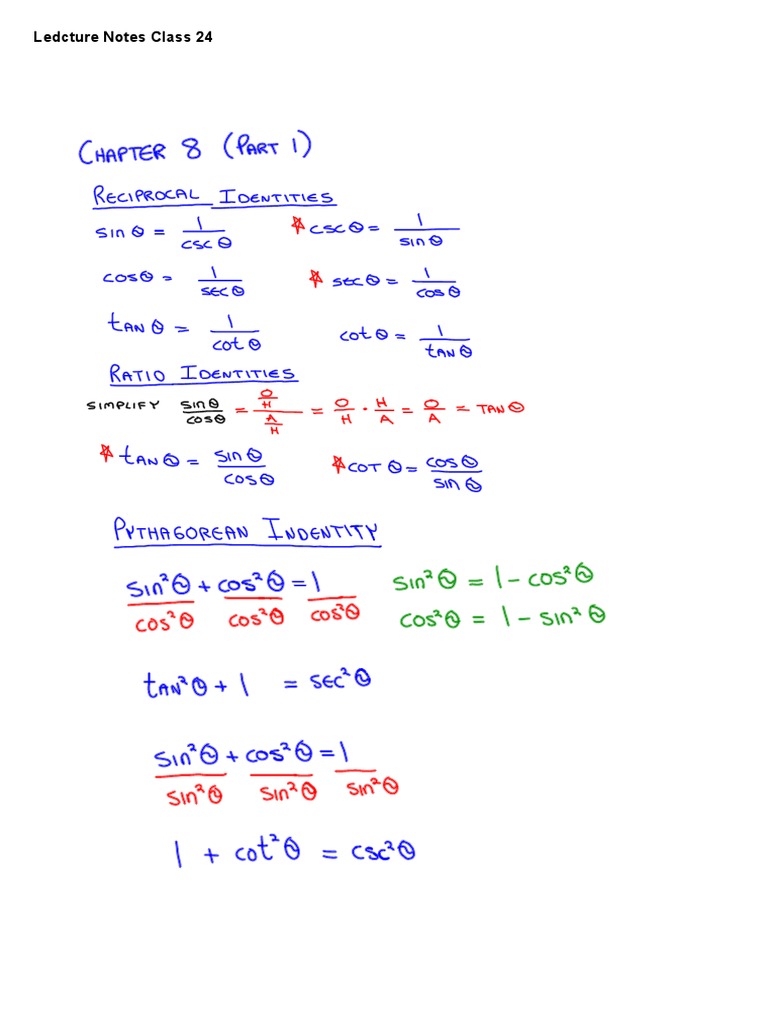 Ledcture Notes Class 24
CHAPTER 8 (PART 1)
RECIPROCAL IDENTITIES
sin θ = 1/csc θ ☆ csc θ = 1/sin θ
cos θ = 1/sec θ ☆ sec θ = 1/cos θ
tan θ = 1/cot θ cot θ = 1/tan θ
RATIO IDENTITIES
SIMPLIFY sin θ/cos θ = (O/H)/(A/H) = O/H · H/A = O/A = TAN θ
☆ tan θ = sin θ/cos θ ☆ COT θ = cos θ/sin θ
PYTHAGOREAN INDENTITY
sin²θ/cos²θ + cos²θ/cos²θ = 1/cos²θ sin²θ = 1 - cos²θ
cos²θ = 1 - sin²θ
tan²θ + 1 = sec²θ
sin²θ/sin²θ + cos²θ/sin²θ = 1/sin²θ
1 + cot²θ = csc²θ